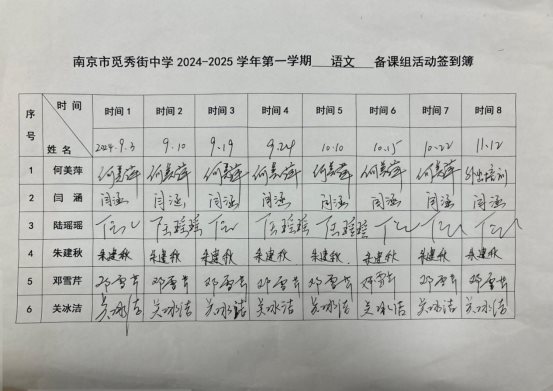 南京市觅秀街中学 2024-2025 学年第一学期 语文 备课组活动签到簿
序号 时间 姓名 时间 1 时间 2 时间 3 时间 4 时间 5 时间 6 时间 7 时间 8
2024.9.3 9.10 9.19 9.24 10.10 10.15 10.22 11.12
1 何美萍 何美萍 何美萍 何美萍 何美萍 何美萍 何美萍 何美萍 外出培训
2 闫涵 闫涵 闫涵 闫涵 闫涵 闫涵 闫涵 闫涵 闫涵
3 陆瑶瑶 陆瑶瑶 陆瑶瑶 陆瑶瑶
4 朱建秋 朱建秋 朱建秋 朱建秋 朱建秋 朱建秋 朱建秋 朱建秋 朱建秋
5 邓雪芹 邓雪芹 邓雪芹 邓雪芹 邓雪芹 邓雪芹 邓雪芹 邓雪芹 邓雪芹
6 关冰洁 关冰洁 关冰洁 关冰洁 关冰洁 关冰洁 关冰洁 关冰洁 关冰洁